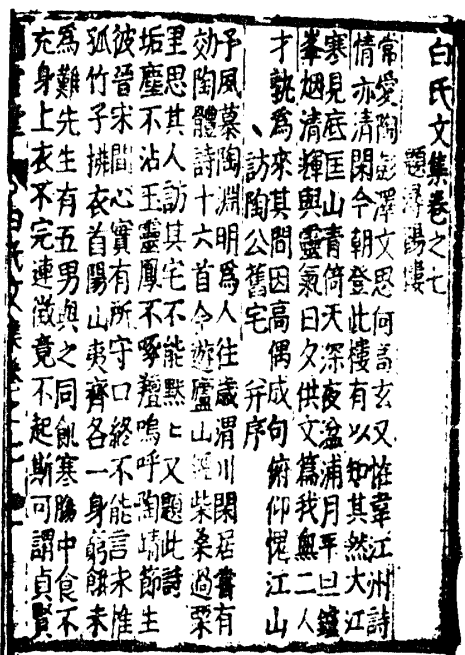 白氏文集卷之七
題潯陽樓
常愛陶彭澤文思何高玄又恠韋江州詩
情亦清閑今朝登此樓有以知其然大江
寒見底匡山青倚天深夜湓浦月平旦鑪
峯烟清輝與靈氣日夕供文篇我無二人
才孰為來其間因高偶成句俯仰愧江山
訪陶公舊宅 并序
予風慕陶淵明爲人往歲渭川閑居嘗有
効陶體詩十六首今遊廬山經柴桑過栗
里思其人訪其宅不能黙〻又題此詩
垢塵不沾玉靈鳳不啄羶嗚呼陶靖節生
彼晉宋間心實有所守口終不能言永惟
孤竹子拂衣首陽山夷齊各一身窮餓未
為難先生有五男與之同飢寒腸中食不
充身上衣不完連徵竟不起斯可謂貞賢
白氏文集